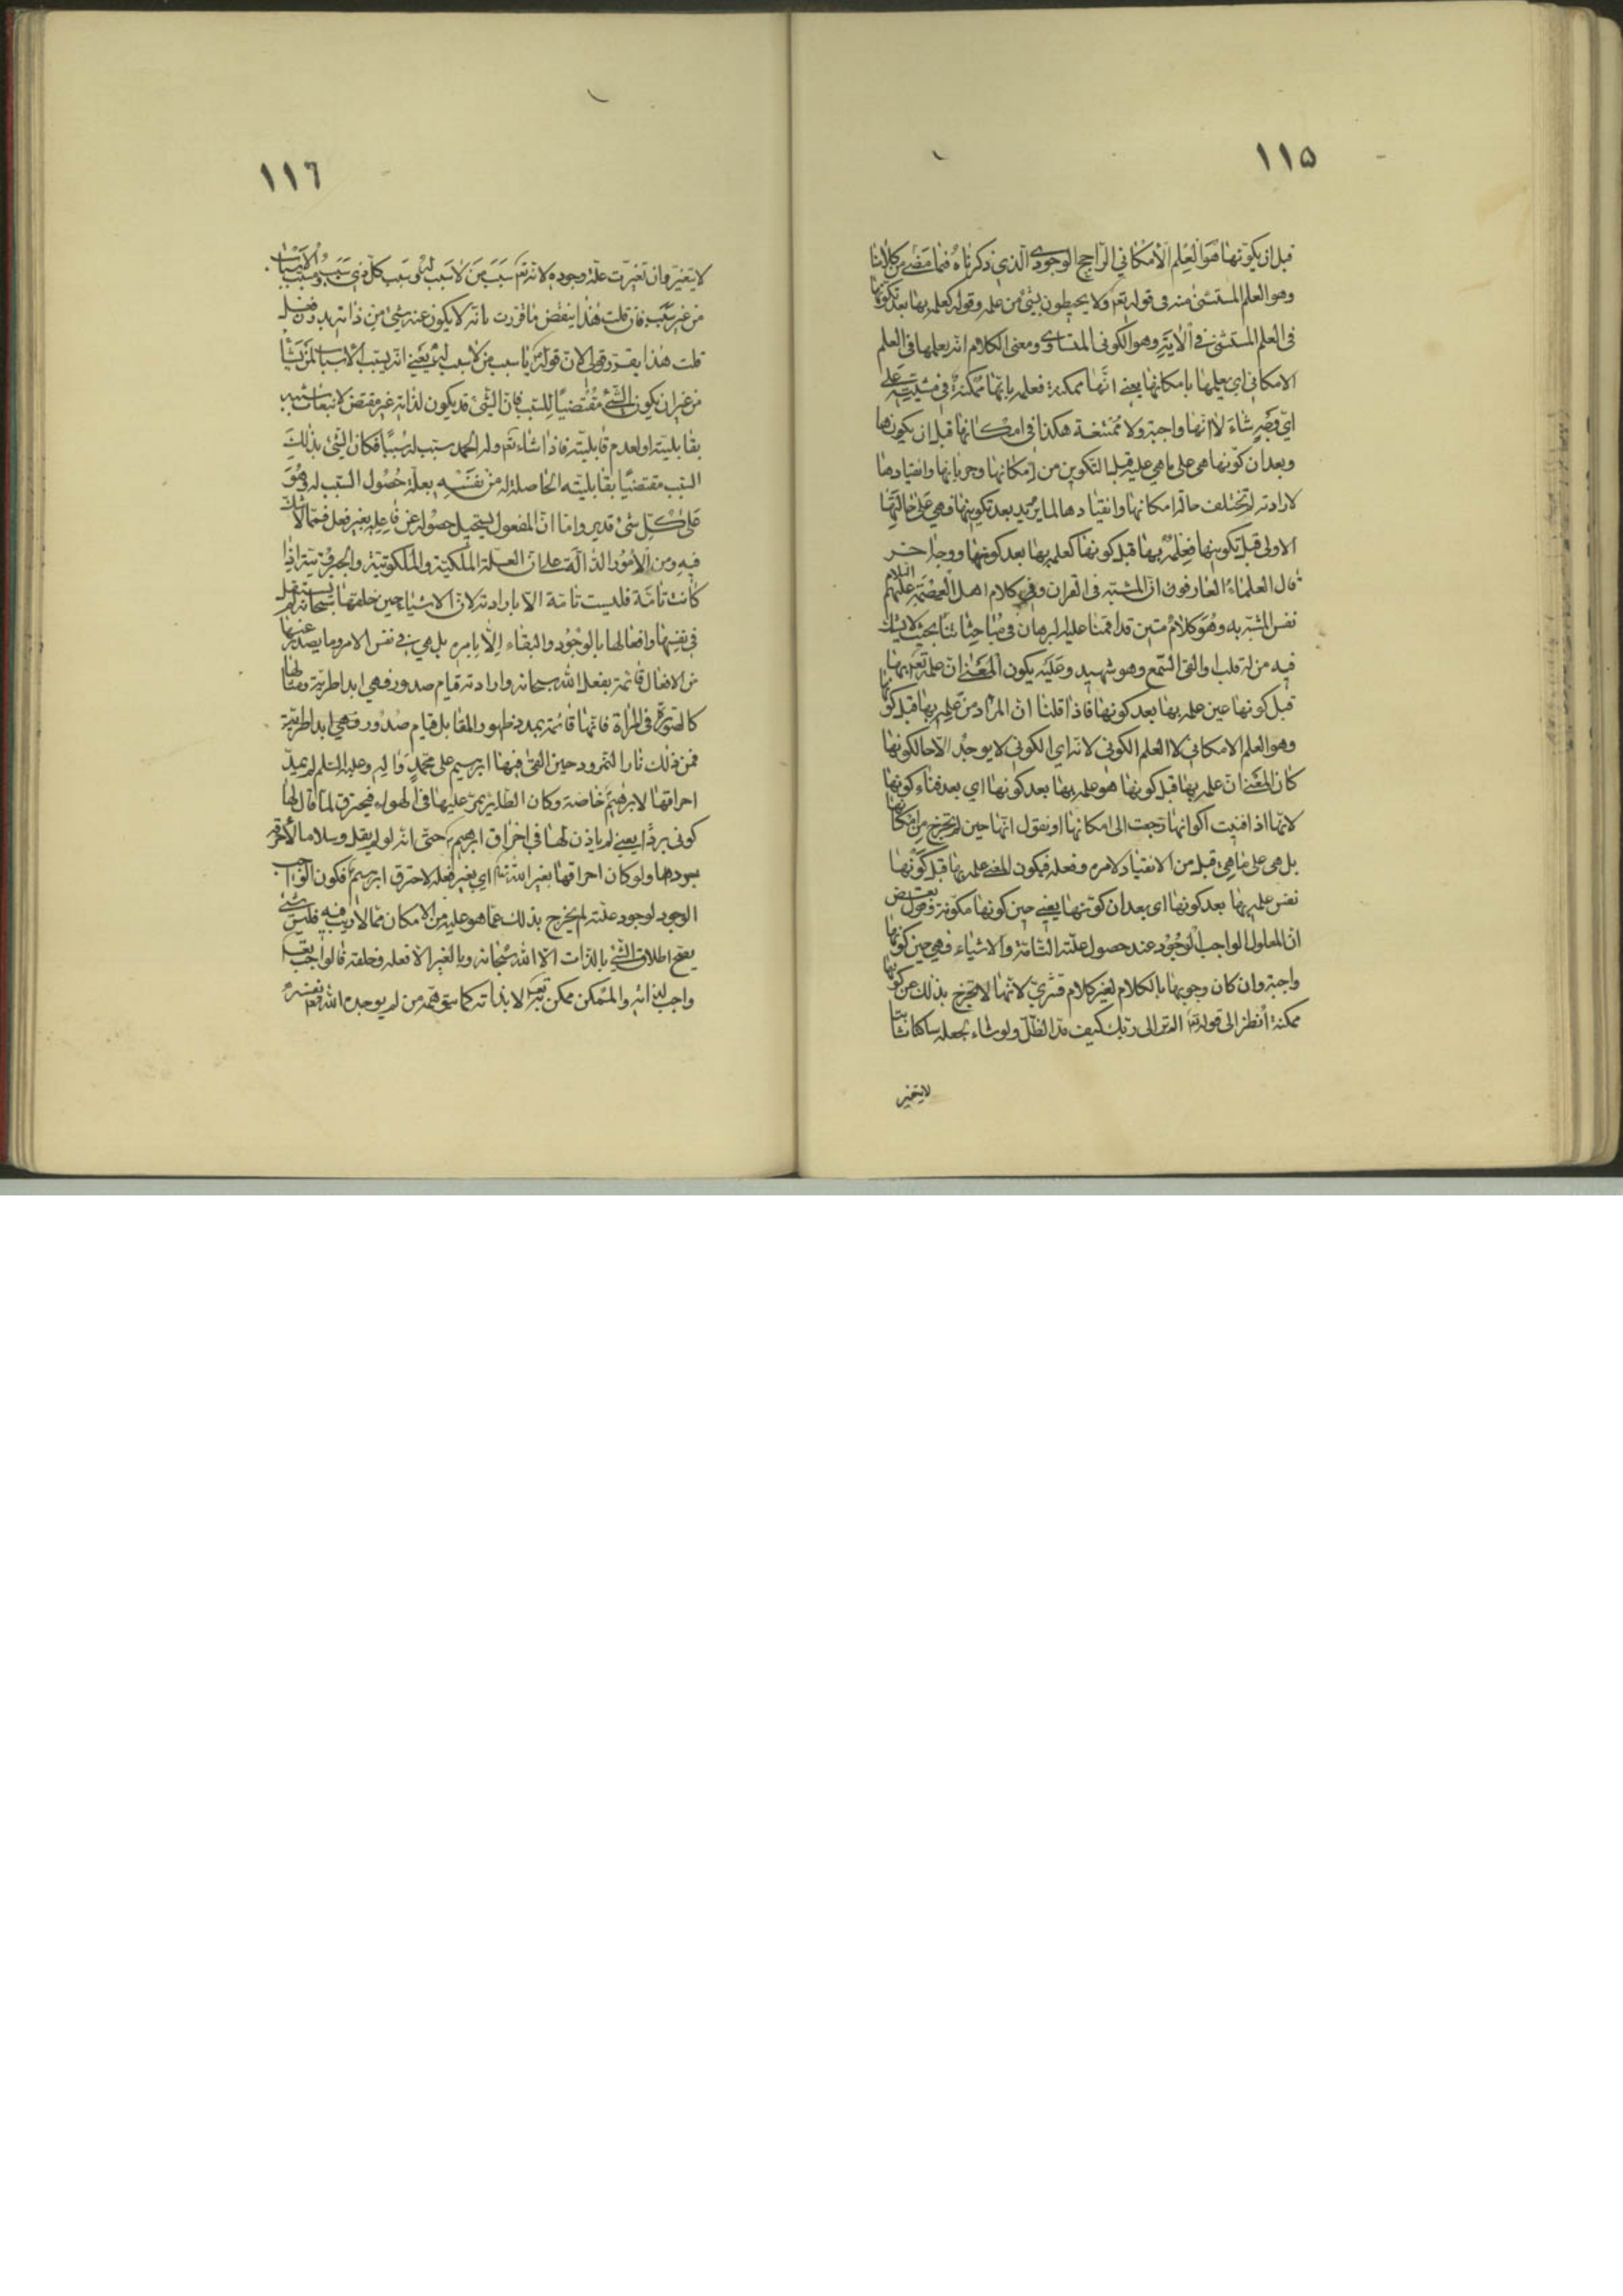 ١١٥
قبل ان يكونها هو العلم الامكاني الراجح الوجودي الذي ذكرناه فيما مضى من كلامنا
وهو العلم المستثنى منه في قوله تعم ولا يحيطون بشئ من علمه وقوله كعلمه بها بعد تكوينها
في العلم المستثنى في الاية وهو الكوني المتساوي ومعنى الكلام انه يعلمها في العلم
الامكاني اي يعلمها بامكانها يعني انها ممكنة فعلمه بانها ممكنة في مشيته على
اي وجه شاء لا انها واجبة ولا ممتنعة هكذا في امكانها قبل ان يكونها
وبعد ان كونها هي على ما هي عليه قبل التكوين من امكانها وجريانها وانقيادها
لارادته لم تختلف حالة امكانها وانقيادها لما يريد بعد تكوينها وهي على حالتها
الاولى قبل تكوينها فعلمه بها قبل كونها كعلمه بها بعد كونها ووجه اخر
قال العلماء العارفون ان المشبه في القران وفي كلام اهل العصمة عليهم السلام
نفس المشبه به وهو كلام متين قد اقمنا عليه البرهان في مباحثاتنا بحيث لا يشك
فيه من له قلب او القى السمع وهو شهيد وعليه يكون المعنى ان علمه تعم بها
قبل كونها عين علمه بها بعد كونها فاذا قلنا ان المراد من علمه بها قبل كونها
وهو العلم الامكاني لا العلم الكوني لانه اي الكوني لا يوجد الا حال كونها
كان المعنى ان علمه بها قبل كونها هو علمه بها بعد كونها اي بعد فناء كونها
لانها اذا فنيت اكوانها رجعت الى امكانها او نقول انها حين لم تخرج من امكانها
بل هي على ما هي قبل من الانقياد لامره وفعله فيكون المعنى علمه بها قبل كونها
نفس علمه بها بعد كونها اي بعد ان كونها يعني حين كونها مكونة وقول بعض
ان المعلول واجب الوجود عند حصول علته التامة والاشياء فهي حين كونها
واجبة وان كان وجوبها بالكلام لغير كلام قشري لانها لا تخرج بذلك عن كونها
ممكنة انظر الى قوله تعم الم تر الى ربك كيف مد الظل ولو شاء لجعله ساكنا ثابتا
لا يتغير
١١٦
لا يتغير وان تغيرت علة وجوده لانه تعم سبب من لا سبب له وسبب كل ذي سبب ومسبب الاسباب
من غير سبب فان قلت هذا ينقض ما قررت بانه لا يكون عنه شئ من ذاته بدون فعله
قلت هذا يقرر قولي لان قوله يا سبب من لا سبب له يعني انه يسبب الاسباب لمن يشاء
من غير ان يكون الشئ مقتضيا للسبب فان الشئ قد يكون لذاته غير مقتض لانبعاث سببه
بقابليته او لعدم قابليته فاذا شاء تعم وله الحمد سبب له سببا فكان الشئ بذلك
السبب مقتضيا بقابليته الحاصلة له من نفسه بعلة حصول السبب له وهو
على كل شئ قدير واما ان المفعول يستحيل حصوله عن فاعله بغير فعل فمما لا شك
فيه ومن الامور الدالة على ان العلة الملكية والملكوتية والجبروتية اذا
كانت تامة فليست تامة الا بارادته لان الاشياء حين خلقها سبحانه لم يستقل
في نفسها وافعالها بالوجود والبقاء الا بامره بل هي في نفس الامر وما يصدر عنها
من الافعال قائمة بفعل الله سبحانه وارادته قيام صدور فهي ابدا طرية ومثالها
كالصورة في المرآة فانها قائمة بمدد ظهور المقابل قيام صدور فهي ابدا طرية
فمن ذلك نار النمرود حين القى فيها ابرهيم على محمد واله وعليه السلم لم يمد
احراقها لابرهيم خاصة وكان الطاير يمر عليها في الهواء فيحترق لما قال لها
كوني بردا يعني لم ياذن لها في احراق ابرهيم حتى انه لو لم يقل وسلاما لاحرقه
ببردها ولو كان احراقها بغير الله تعم اي بغير فعله لاحترق ابرهيم فكون الواجب
الوجود لوجود علته لم يخرج بذلك عما هو عليه من الامكان مما لا ريب فيه فليس شئ
يصح اطلاق الشئ بالذات الا الله سبحانه وبالغير الا فعله وخلقه فالواجب تعم
واجب لذاته والممكن ممكن به تعم لا بذاته كما يتوهمه من لم يوجده الله نفسه